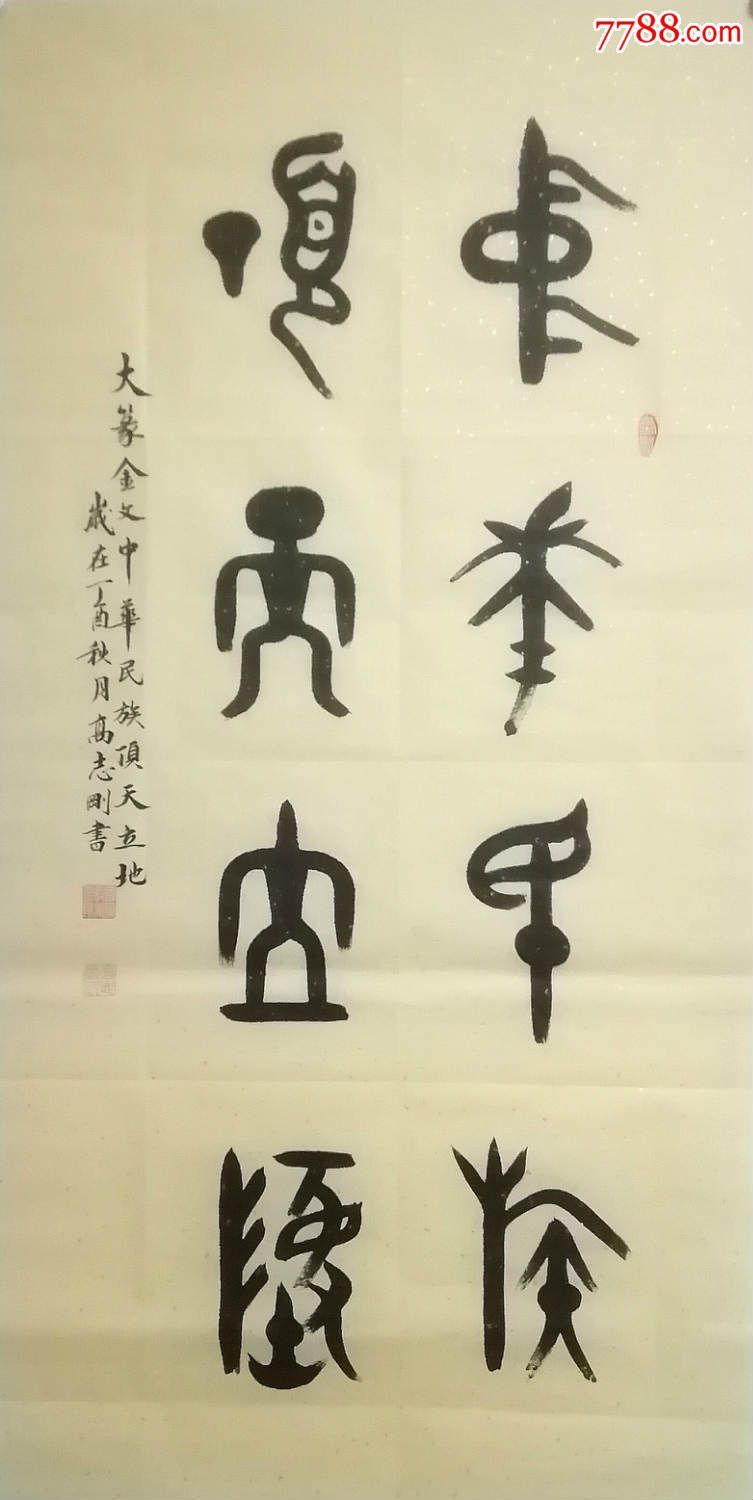 7788.com
中華民族
頂天立地
大篆金文中華民族頂天立地
歲在丁酉秋月高志剛書